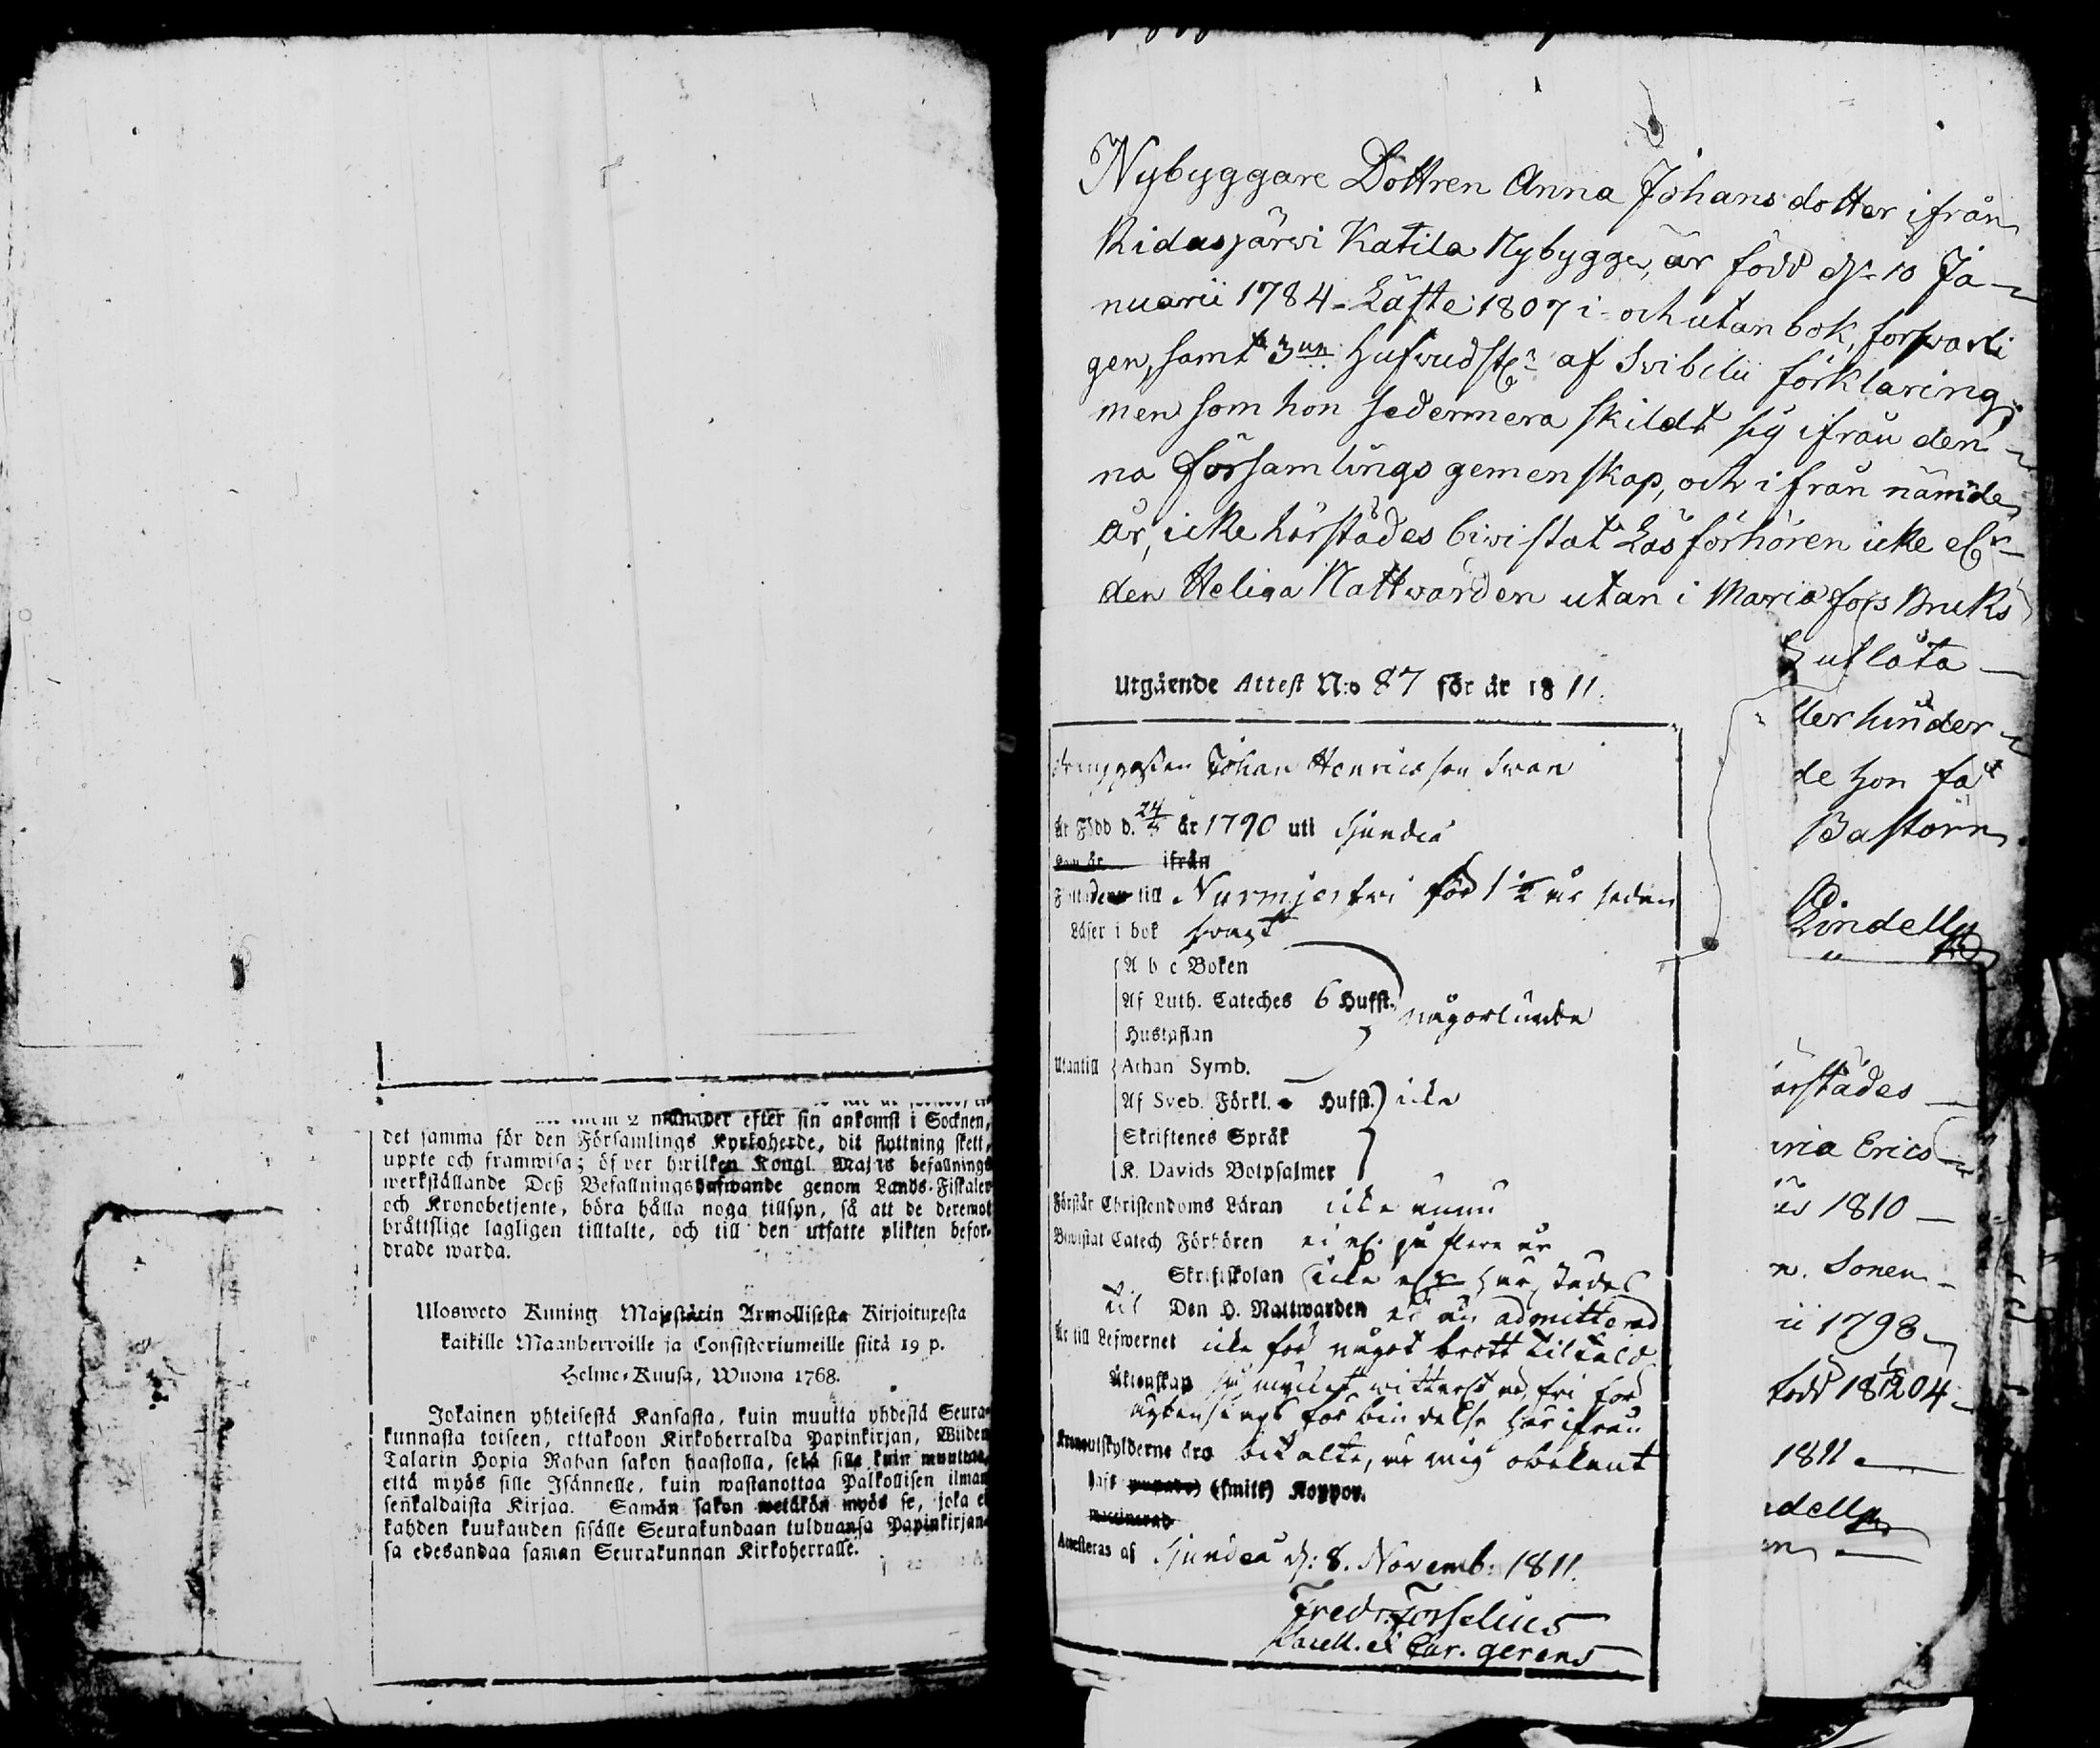 månader efter sin ankomst i Socknen,
det samma för den Församlings Kyrkoherde, dit flyttning skett,
uppte och framwisa; öfver hwilken Kongl. Maj:ts befallnings
werkställande Deß Befallningshafwande genom Lands-Fiskaler
och Kronobetjente, böra hålla noga tillsyn, så att de deremot
bråttslige lagligen tilltalte, och till den utsatte plikten befor-
drade warda.
Ulosweto Kuning Majestätin Armollisesta Kirjoituxesta
kaikille Maanherroille ja Consistoriumeille siitä 19 p.
Helme-Kuusa, Wuona 1768.
Jokainen yhteisestä Kansasta, kuin muutta yhdestä Seura-
kunnasta toiseen, ottakoon Kirkoherralda Papinkirjan, Wiiden
Talarin Hopia Rahan sakon haastolla, sekä sille kuin muuttaa,
että myös sille Isännelle, kuin wastanottaa Palkollisen ilman
senkaldaista Kirjaa. Samän sakon wetäkön myös se, joka ei
kahden kuukauden sisälle Seurakundaan tulduansa Papinkirjan-
sa edesandaa saman Seurakunnan Kirkoherralle.
Nybyggare Dottren Anna Johans dotter ifrån
Kidasjärwi Katila Nybygge, är född d. 10 Ja-
nuarii 1784 - Läste 1807 i- och utan bok, forswarli
gen, samt 3 Hufwudst. af Svibelii förklaring,
men som hon sedermera skildt sig ifrån den-
na församlings gemenskap, och ifrån nämde
år, icke härstädes biwistat Läsförhören icke el.
den Heliga Nattwarden utan i Maria fors Bruks
utlåta
ller hinder
de hon få
Bastörn
Lindell
ärstädes
ria Erics
1810
n. Sonen
ii 1798
född 1804
1811
dell
Utgående Attest N:o 87 för år 1811.
Drenggossen Johan Henricsson Swan
Är Född d. 24/3 år 1790 uti Sjundeå
Kom år ifrån
till Nurmijerfwi för 1 1/2 år sedan
Läser i bok swagt
A b c Boken
Af Luth. Cateches 6 Hufst. någorlunda
Hustaflan
Utantill Athan Symb.
Af Sveb. Förkl. Hufst. icke
Skriftenes Språk
K. Davids Botpsalmer
Förstår Christendoms Läran icke ännu
Biwistat Catech Förhören ei på flere år
Skriftskolan icke här städes
til Den H. Nattwarden ei än admitterad
Är till Lefwernet icke för något brott tiltald
Äktenskap fri för
ägtenskaps förbindelse härifrån
Kronoutskylderne äro betalte, är mig obekant
haft (smitt) Koppor.
vaccinerad
Attesteras af Sjundeå d: 8. Novemb: 1811.
Fredr. Forselius
Sacell. et Cur. gerens